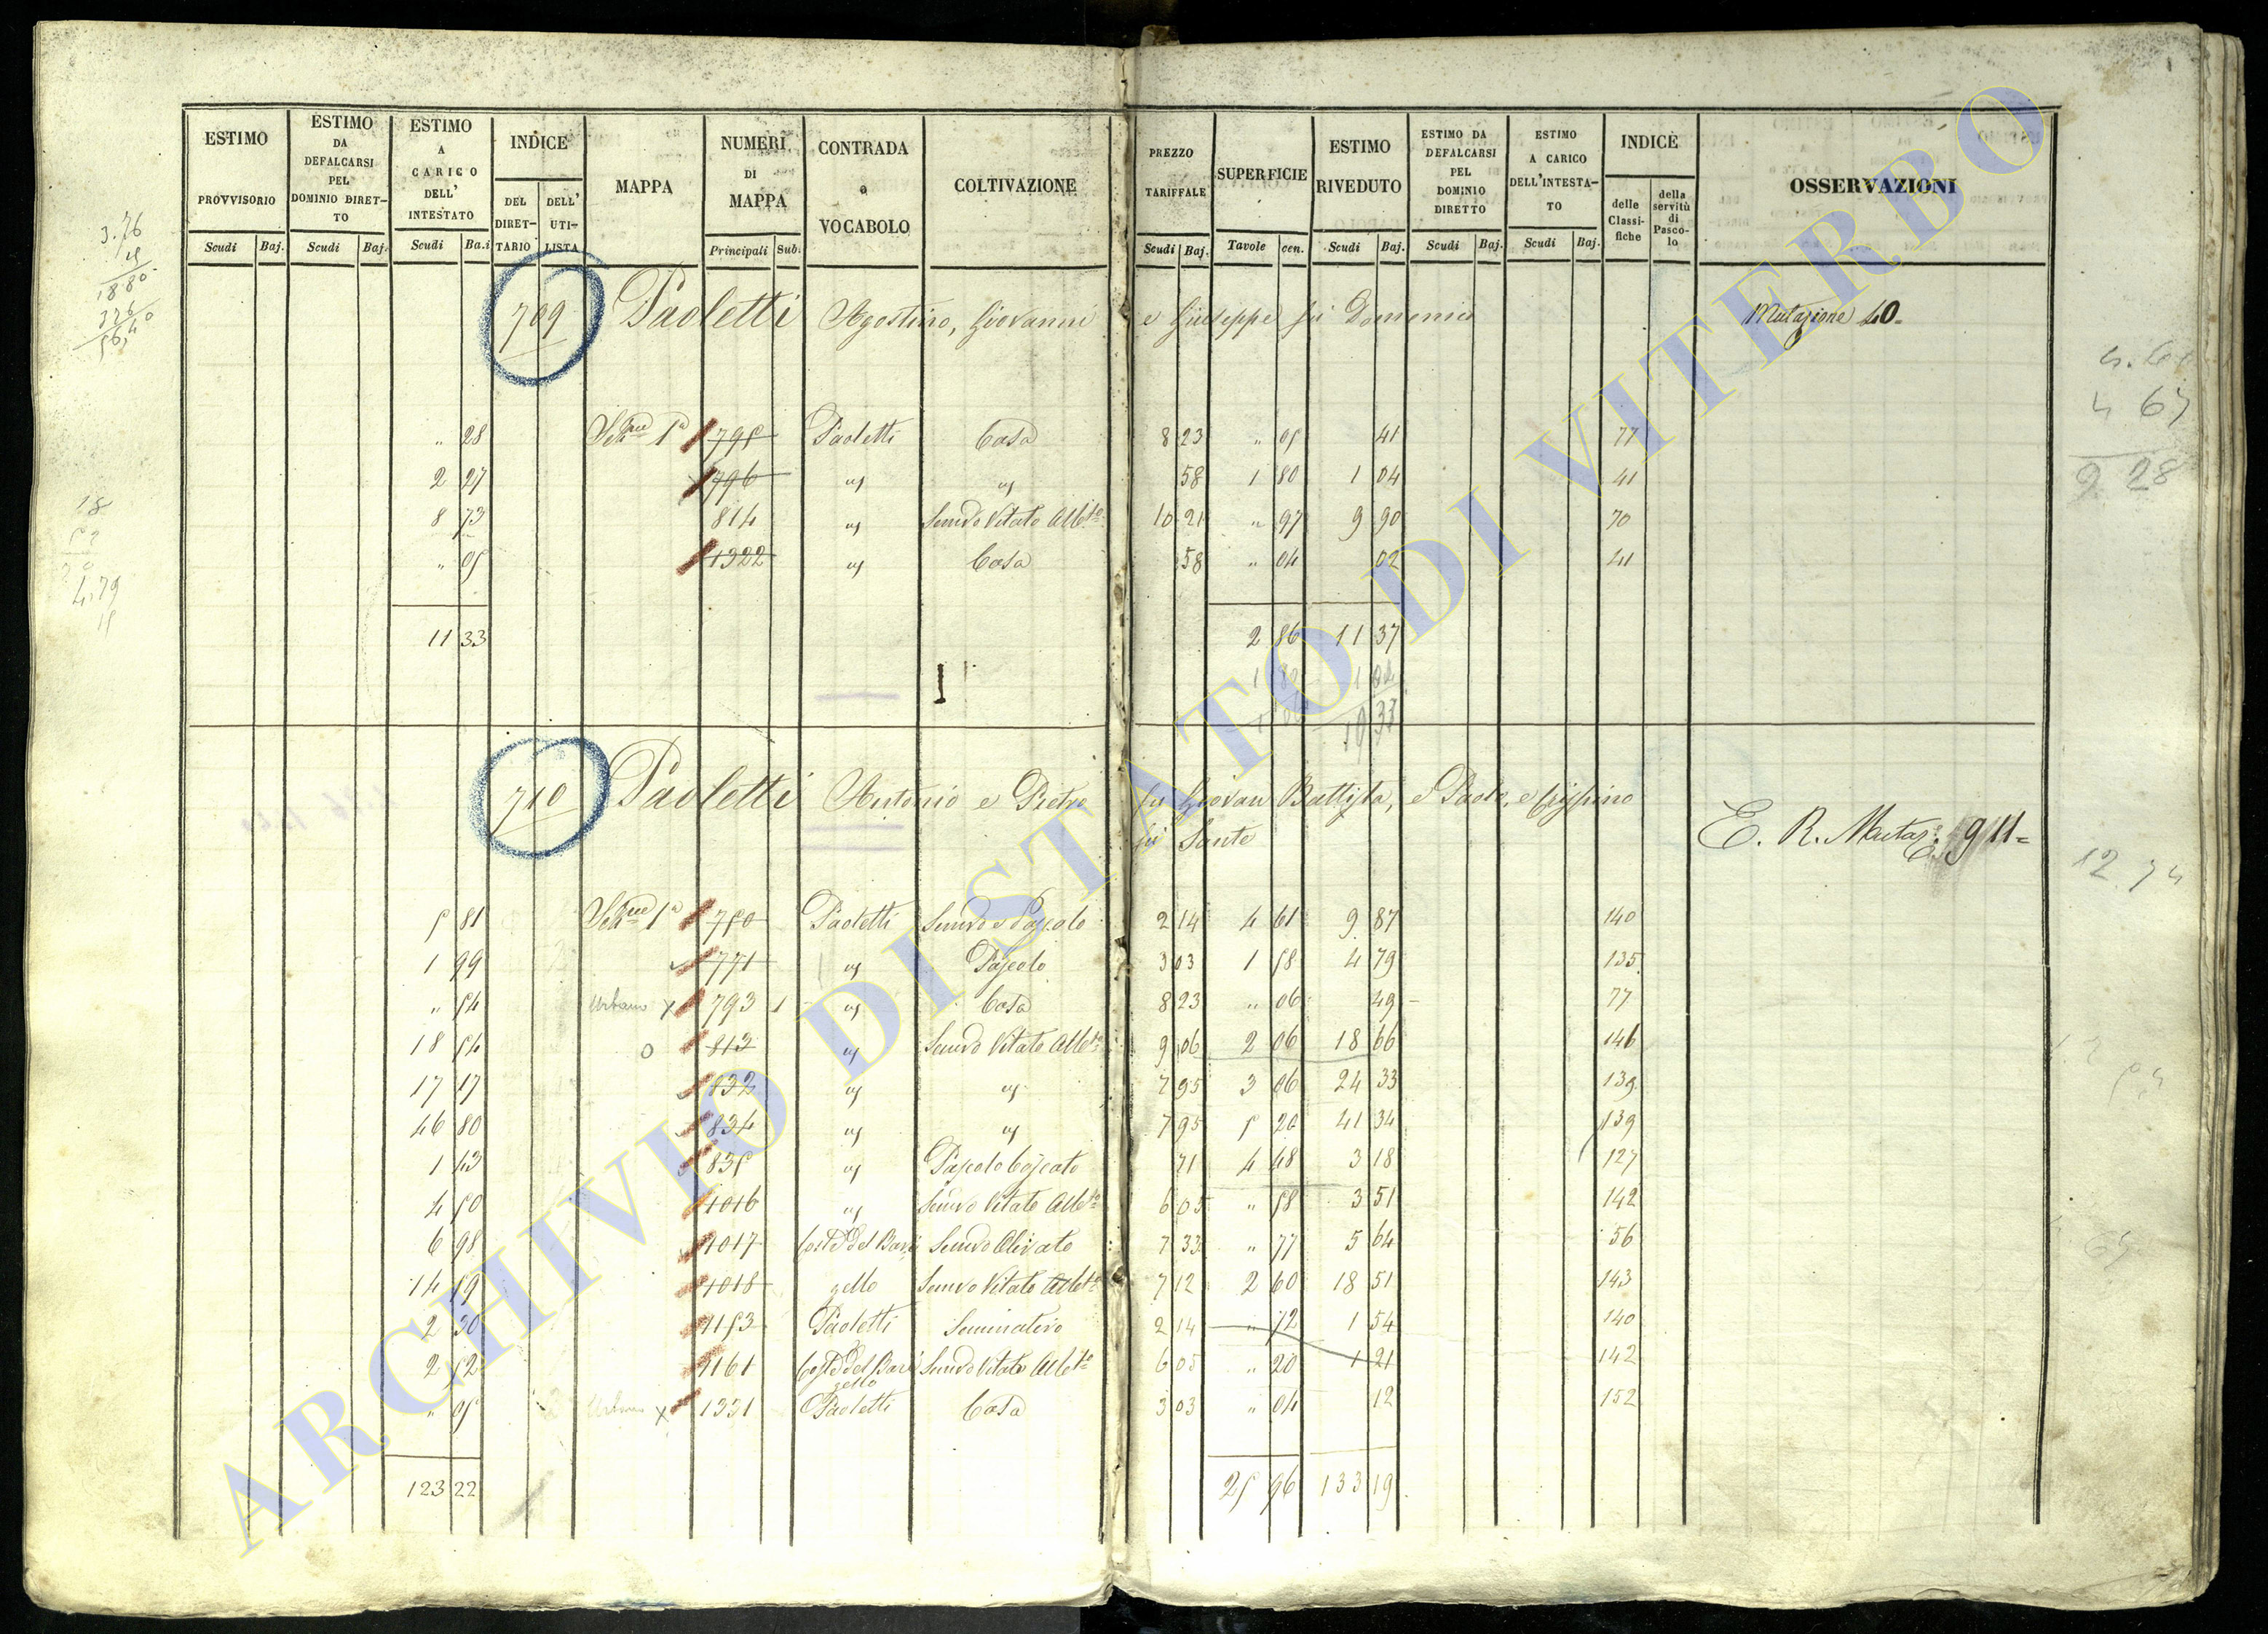 ESTIMO PROVVISORIO Scudi Baj.
ESTIMO DA DEFALCARSI PEL DOMINIO DIRET-TO Scudi Baj.
ESTIMO A CARICO DELL' INTESTATO Scudi Ba.i
INDICE DEL DIRET-TARIO DELL' UTI-LISTA
MAPPA
NUMERI DI MAPPA Principali Sub.
CONTRADA o VOCABOLO
COLTIVAZIONE
PREZZO TARIFFALE Scudi Baj.
SUPERFICIE Tavole cen.
ESTIMO RIVEDUTO Scudi Baj.
ESTIMO DA DEFALCARSI PEL DOMINIO DIRETTO Scudi Baj.
ESTIMO A CARICO DELL'INTESTA-TO Scudi Baj.
INDICE delle Classi-fiche della servitù di Pasco-lo
OSSERVAZIONI
709 Paoletti Agostino, Giovanni e Giuseppe fù Domenico Mutazione 40
" 28 Sch.ne 1a 795 Paoletti Casa 8 23 " 05 41 77
2 27 796 " " 58 1 80 1 04 41
8 73 814 " Semivo Vitato Alb.to 10 21 " 97 9 90 70
" 05 1322 " Casa 58 " 04 02 41
11 33 2 86 11 37
10 33
710 Paoletti Antonio e Pietro fù Giovan Battista, e Paolo, e Crispino
fù Sante E. R. Mutaz: 911=
5 81 Sch.ne 1a 750 Paoletti Semivo e Pascolo 2 14 4 61 9 87 140
1 99 771 " Pascolo 3 03 1 58 4 79 135
" 54 Urbano x 793 1 " Casa 8 23 " 06 49 77
18 54 O 813 " Semivo Vitato Alb.to 9 06 2 06 18 66 146
17 17 832 " " 7 95 3 06 24 33 139
46 80 834 " " 7 95 5 20 41 34 139
1 43 835 " Pascolo Cespato 71 4 48 3 18 127
4 50 1016 " Semivo Vitato Alb.to 6 05 " 58 3 51 142
6 98 1017 Coste del Bar Semivo Olivato 7 33 " 77 5 64 56
14 59 1018 gello Semivo Vitato Alb.to 7 12 2 60 18 51 143
2 30 1153 Paoletti Seminativo 2 14 " 72 1 54 140
2 52 1161 Coste del Bar gello Semivo Vitato Alb.to 6 05 " 20 1 21 142
" 05 Urbano x 1331 Paoletti Casa 3 03 " 04 12 152
123 22 25 96 133 19
3.76
18 80
4.79
4 67
9 28
12.74
ARCHIVIO DI STATO DI VITERBO